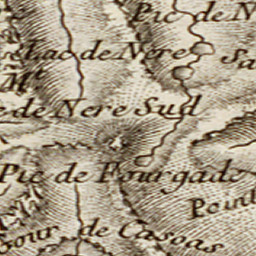 Pic de N
Lac de Nere Sa
Mt
de Nere Sud
Pic de Fourgade
Point
our de Casoas